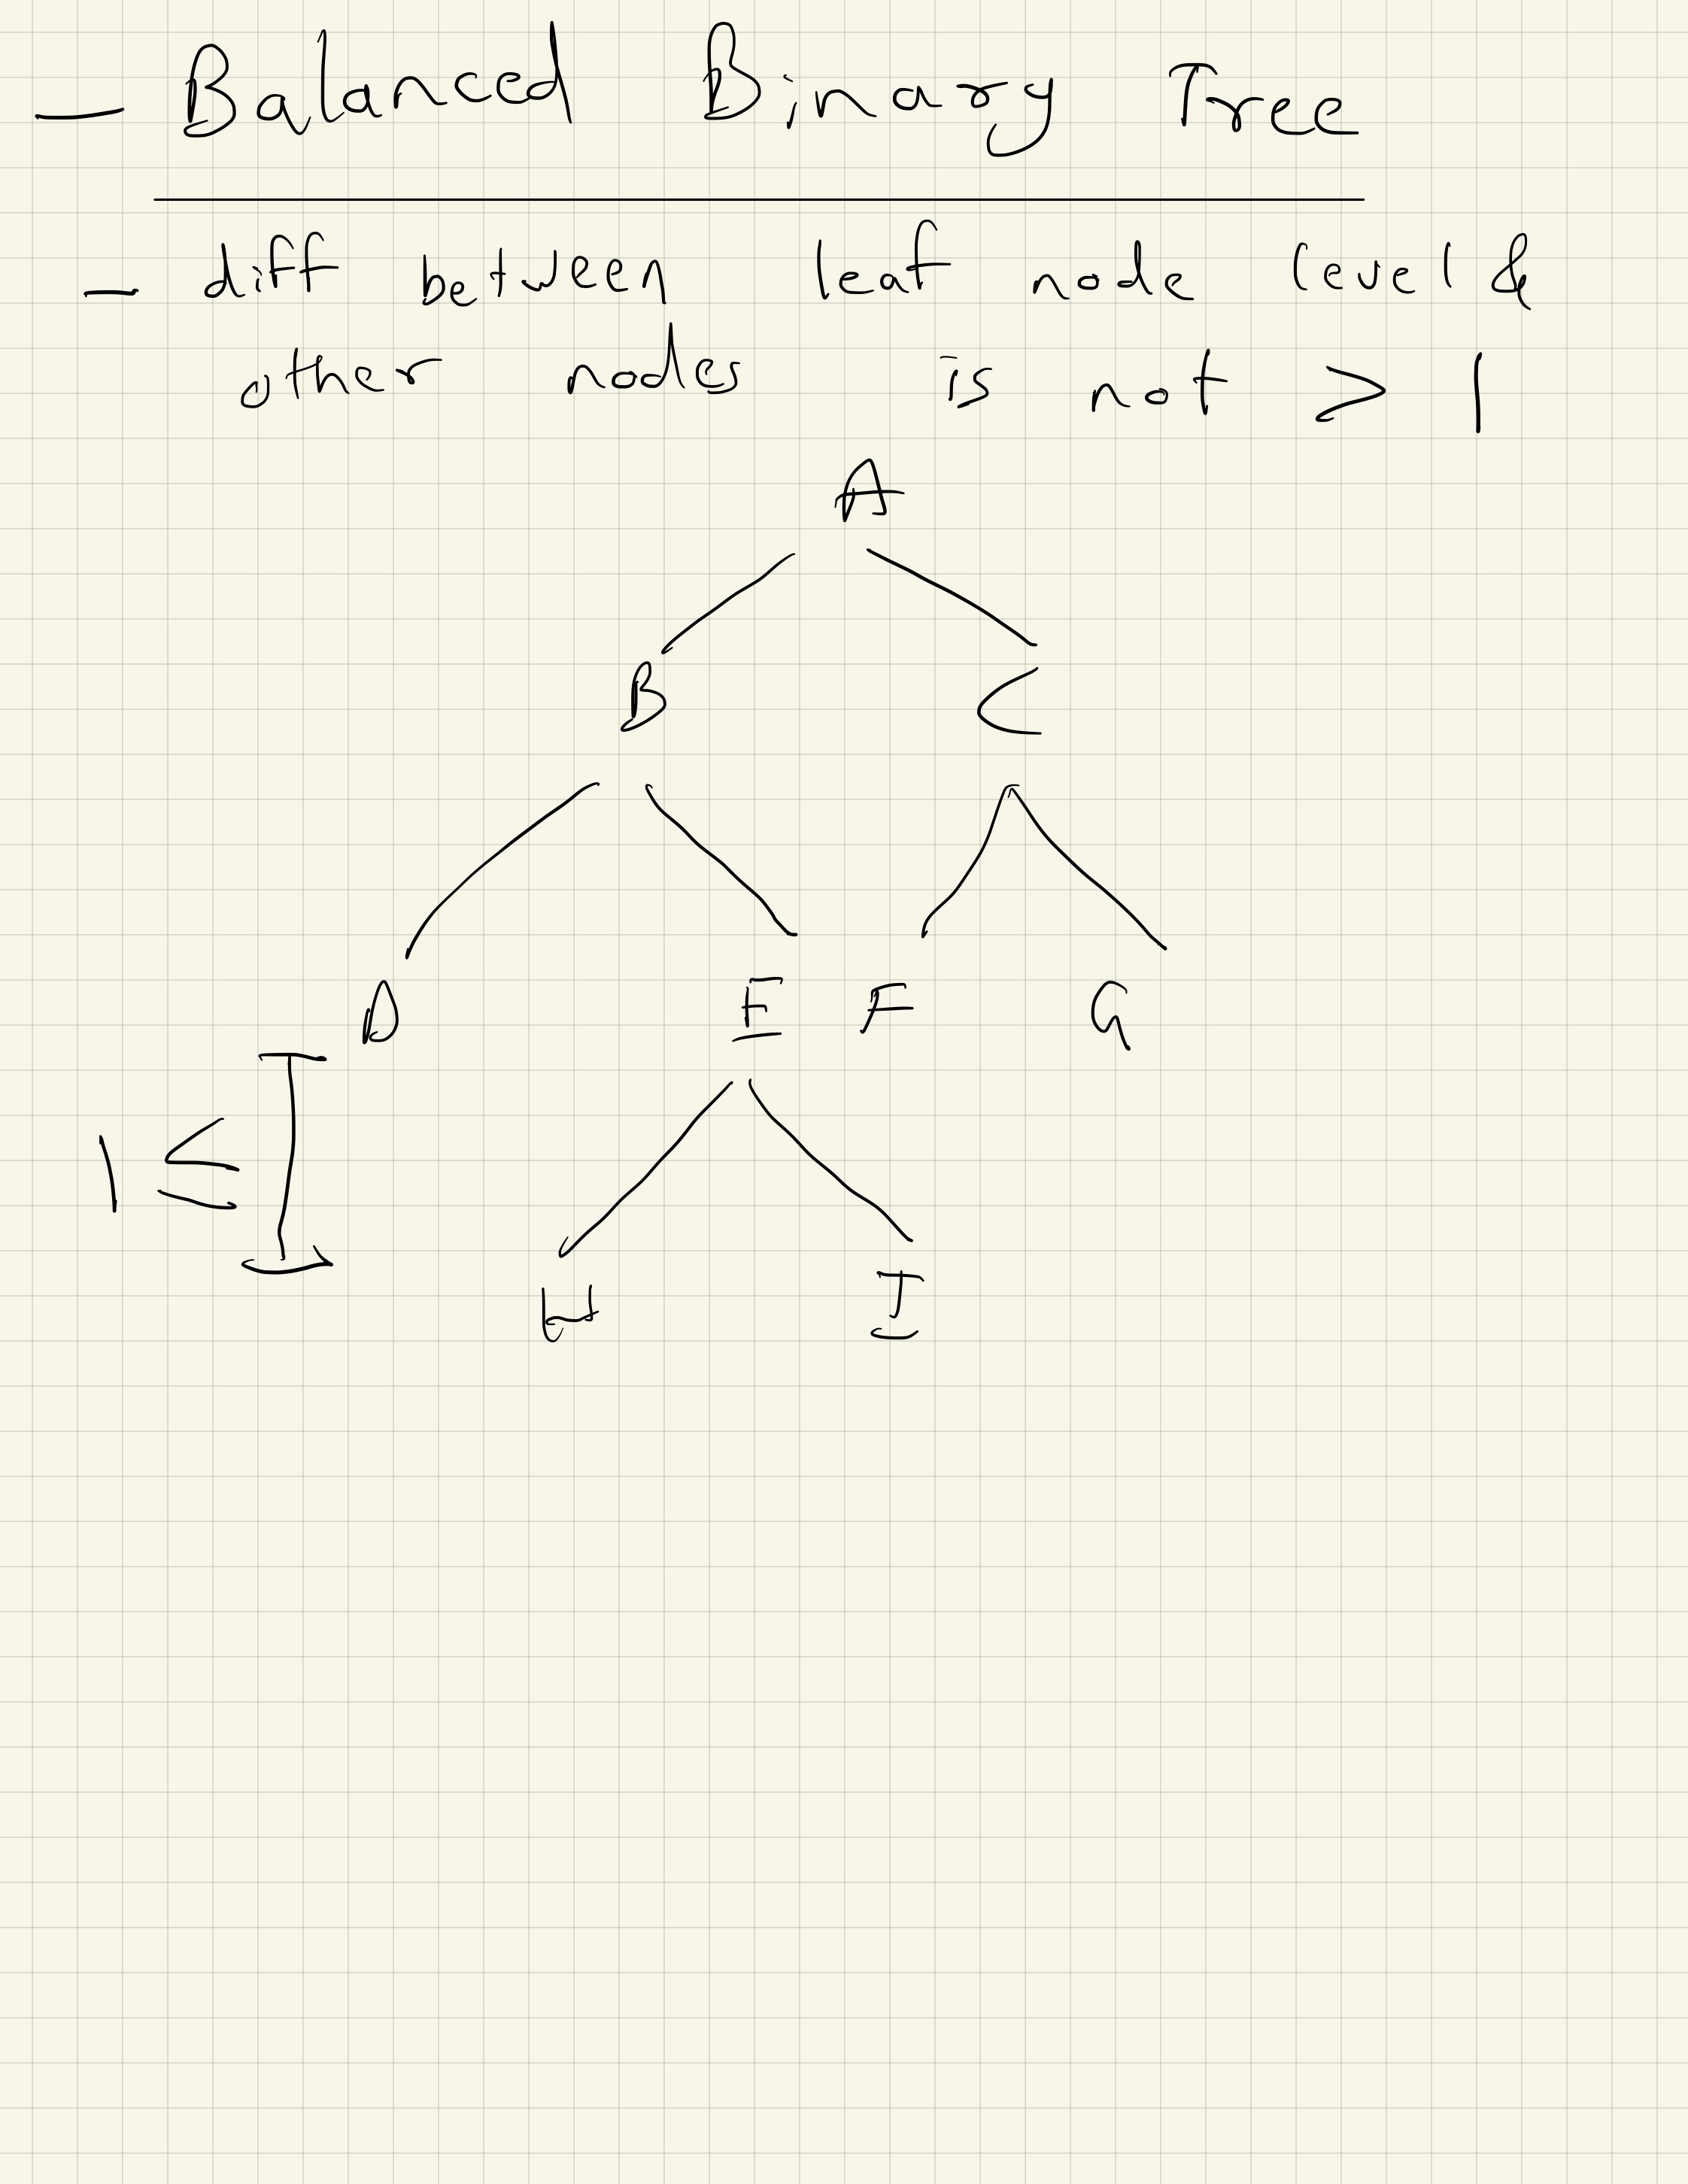 — Balanced Binary Tree
— diff between leaf node level &
other nodes is not > 1
A
B C
D E F G
1 ≤
H I